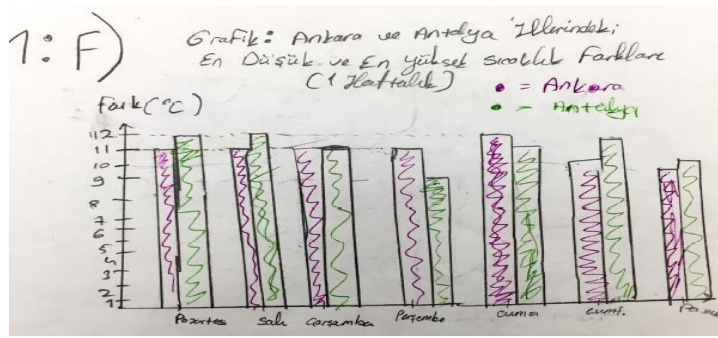 1: F)
Grafik: Ankara ve Antalya İllerindeki
En Düşük ve En yüksek sıcaklık Farkları
(1 Haftalık)
• = Ankara
• = Antalya
Fark (°C)
12
11
10
9
8
7
6
5
4
3
2
1
Pazartes Salı Çarşamba Perşembe Cuma Cumt. Pazar